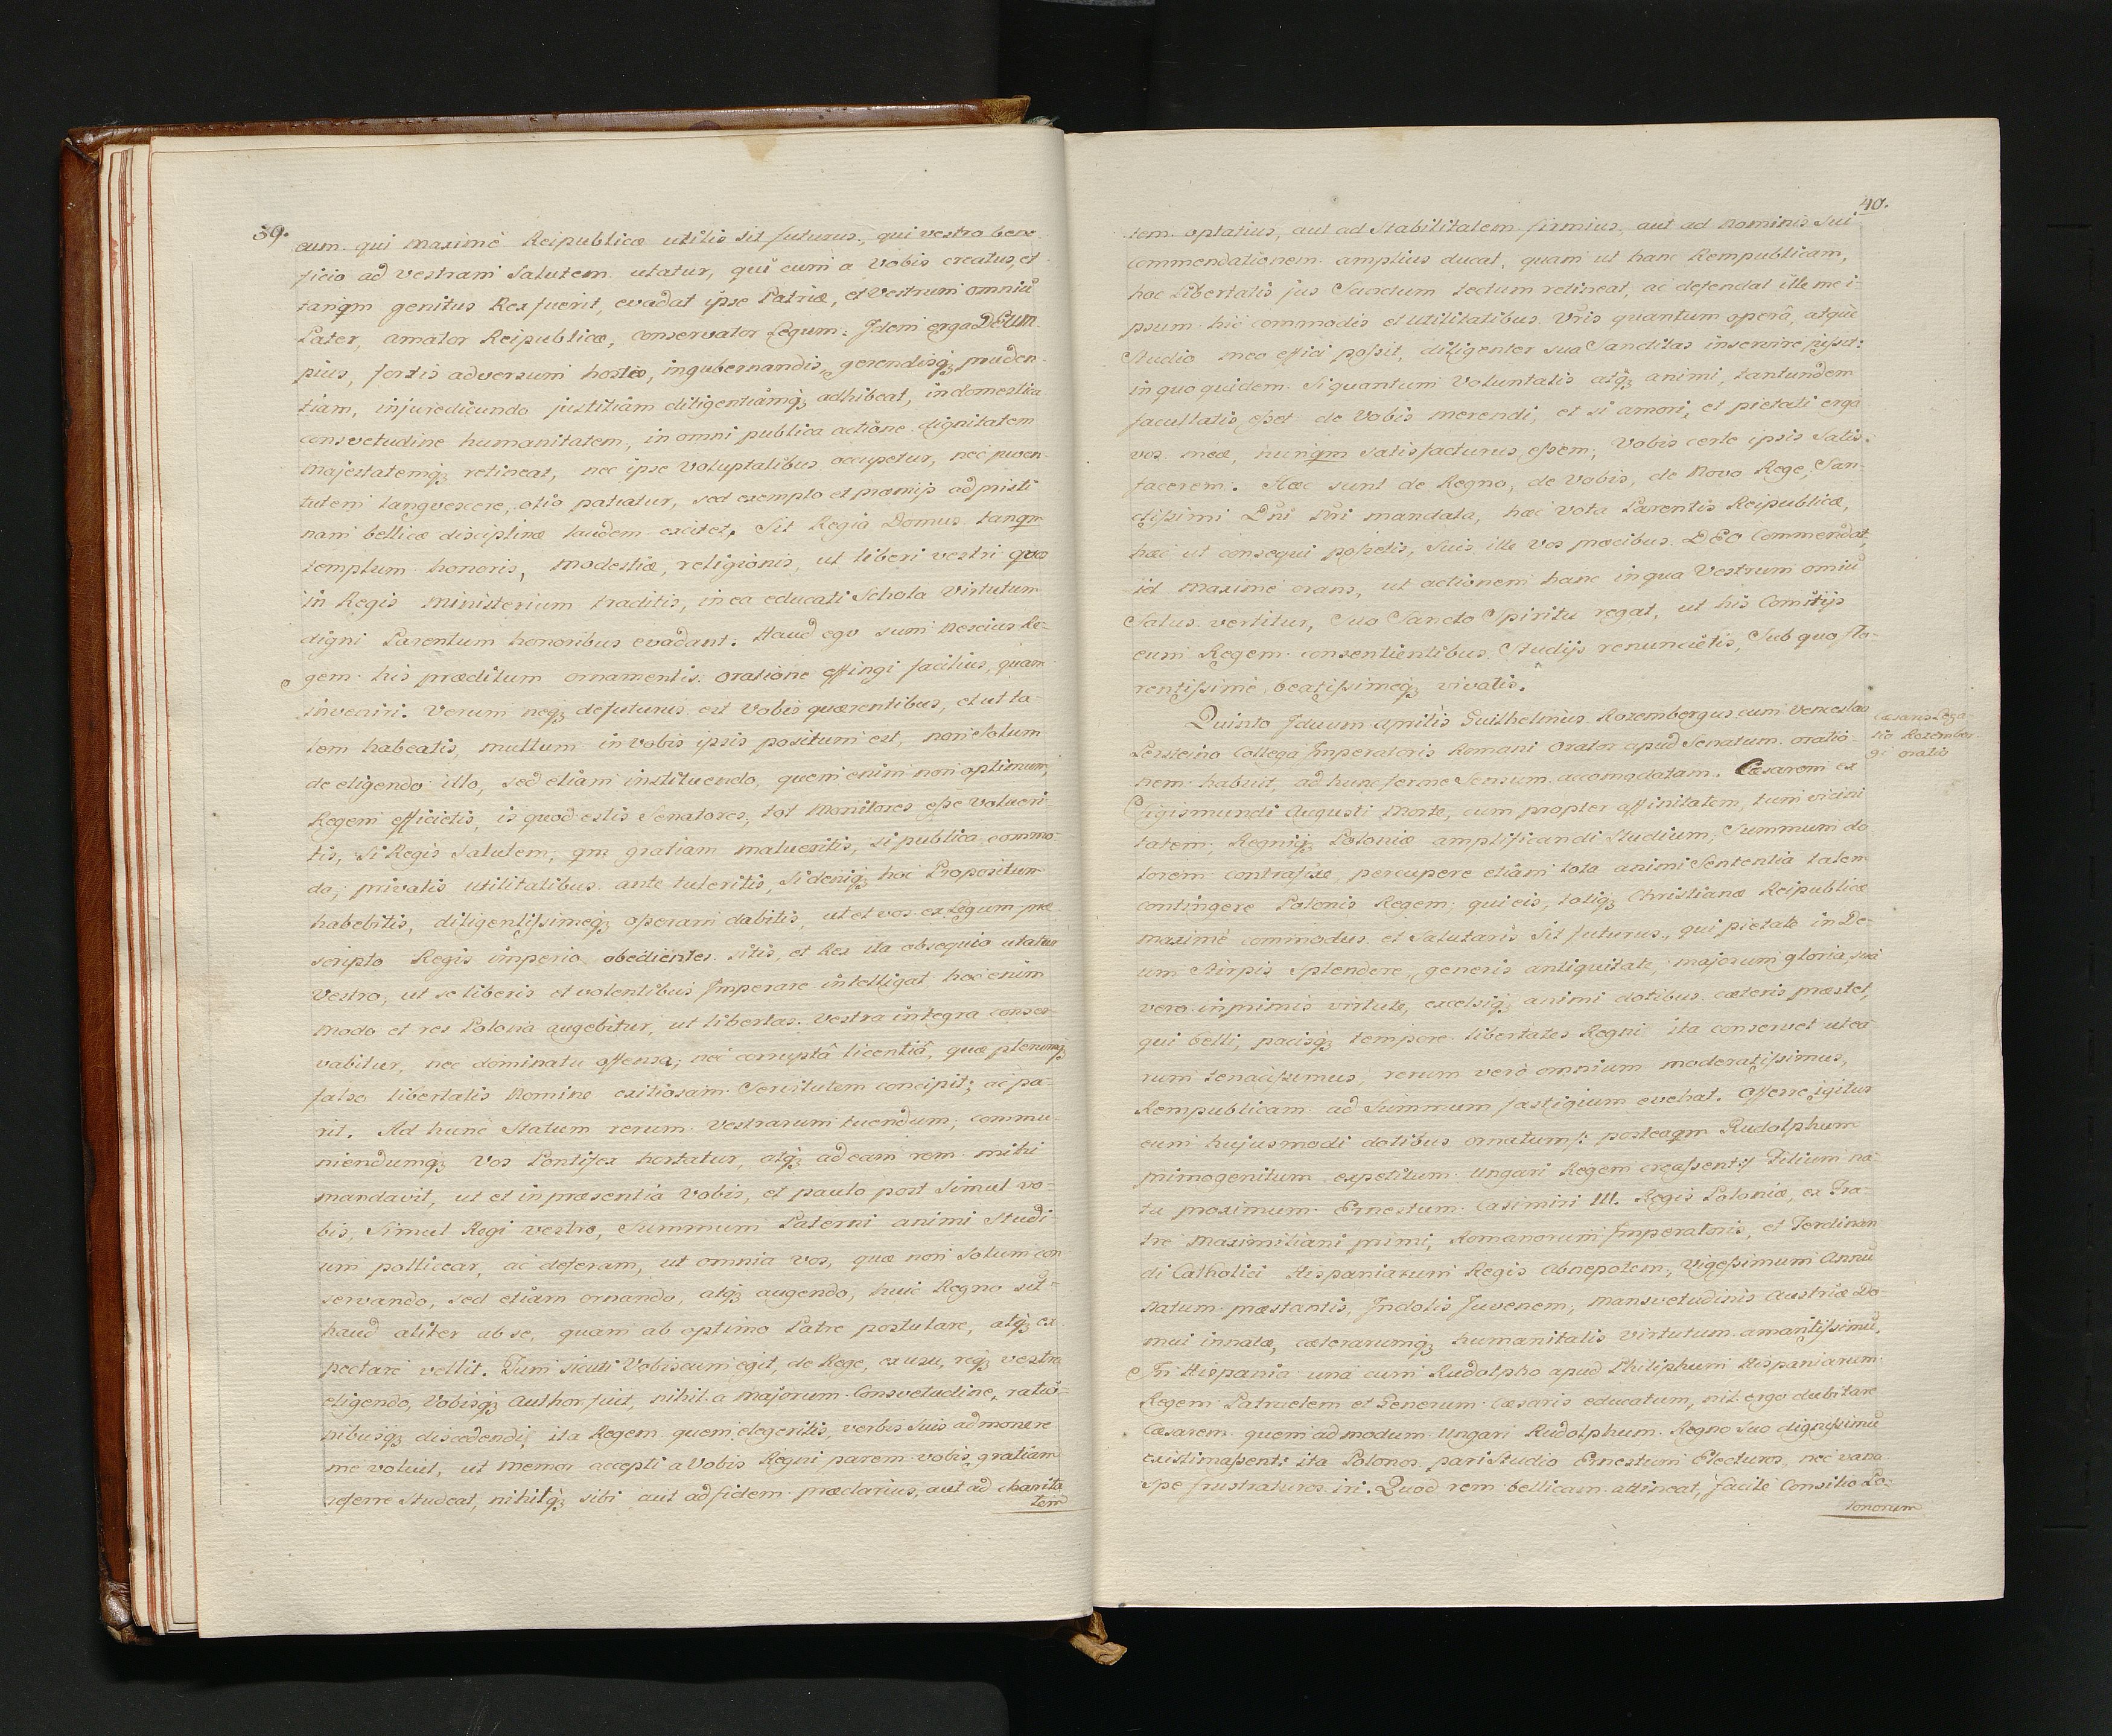 39.
eum qui maximè Reipublicæ utilis sit futurus, qui vestro bene
ficio ad vestram Salutem utatur, qui cum a Vobis creatus, et
tanqm genitus Rex fuerit, evadat ipse Patriæ, et Vestrum omniũ
Pater, amator Reipublicæ, conservator Legum. Idem erga DEUM
pius, fortis adversum hostes, in gubernandis, gerendisq; pruden-
tiam, in juredicundo justitiam diligentiamq; adhibeat, in domestica
consvetudine humanitatem, in omni publica actione dignitatem
Majestatemq; retineat, nec ipse Voluptatibus occupetur, nec juven-
tutem langvescere otio patiatur, sed exemplo et præmijs ad pristi
nam bellicæ disciplinæ laudem excitet. Sit Regia Domus tanqm
templum honoris, modestiæ, religionis, ut liberi vestri quos
in Regis ministerium traditis, in ea educati Schola Virtutum
digni Parentum honoribus evadant. Haud ego sum nescius Re-
gem his præditum ornamentis oratione effingi facilius, quam
inveniri. Verum neq; defuturus est Vobis quærentibus, et ut ta-
lem habeatis, multum in vobis ipsis positum est, non solum
de eligendo illo, sed etiam instituendo, quem enim non optimum,
Regem efficietis, is quod estis Senatores, tot Monitores esse volueri-
tis, si Regis salutem, qm gratiam malueritis, si publica commo-
da, privatis utilitatibus ante tuleritis, si deniq; hoc Propositum
habebitis, diligentissimeq; operam dabitis, ut et vos ex Legum præ
scripto Regis imperio obedientes sitis, et Rex ita obsequio utatur
Vestro, ut se liberis et volentibus Imperare intelligat hoc enim
modo et res Polona augebitur, ut libertas vestra integra conser
vabitur, nec dominatu offensa, nec corruptâ licentiâ, quæ plerumq;
falso libertatis Nomine exitiosam Servitutem concipit, ac pa-
rit. Ad hunc Statum rerum Vestrarum tuendum, commu-
niendumq; Vos Pontifex hortatur, atq; ad eam rem mihi
mandavit, ut et in præsentia Vobis, et paulo post simul vo-
bis, simul Regi vestro, summum Paterni animi Studi-
um pollicear, ac deferam, ut omnia vos, quæ non solum con
servando, sed etiam ornando, atq; augendo, huic Regno sit-
haud aliter ab se, quam ab optimo Patre postulare, atq; ex
pectare vellit. Tum sicuti Vobiscum egit, de Rege, ex usu, reiq; vestra
eligendo, Vobisq; Author fuit, nihil a majorum Consvetudine, ratio-
nibusq; discedendi, ita Regem quem elegeritis, verbis suis admonere
me voluit, ut memor accepti a Vobis Regni parem vobis gratiam
referre studeat, nihilq; sibi aut ad fidem præclarius, aut ad charita
tem
40.
tem optatius, aut ad Stabilitatem firmius, aut ad nominis Sui
commendationem amplius ducat, quam ut hanc Rempublicam,
hoc Libertatis jus Sanctum tectum retineat, ac defendat ille me i-
psum hic commodis et Utilitatibus Vris quantum operâ, atque
Studio meo effici possit, diligenter sua Sanctitas inservire jussit:
in quo quidem si quantum Voluntatis atq; animi, tantundem
facultatis esset de Vobis merendi, et si amori, et pietati erga
vos meæ, nunqm satisfacturus essem, Vobis certe ipsis satis-
facerem. Hæc sunt de Regno, de Vobis, de Novo Rege, San-
ctissimi Dni Nri mandata, hæc vota Parentis Reipublicæ,
hæc ut consequi possetis, suis ille Vos precibus DEO Commendat,
id maximè orans, ut actionem hanc in qua Vestrum omiũ
Salus vertitur, Suo Sancto Spiritu regat, ut his Comitijs
eum Regem consentientibus Studijs renuncietis, Sub quo flo-
rentissimè, beatissimeq; vivatis.
Quinto Iduum Aprilis Guilhelmus Rozembergus cum Venceslao
Persteino Collega Imperatoris Romani Orator apud Senatum oratio-
nem habuit, ad hunc ferme Sensum accomodatam. Cæsarem ex
Sigismundi Augusti Morte, cum propter affinitatem, tum vicini
tatem, Regniq; Poloniæ amplificandi Studium, Summum do
lorem contraxisse, percupere etiam tota animi Sententia talem
contingere Polonis Regem qui eis, totiq; Christianæ Reipublicæ
maximè commodus et Salutaris Sit futurus, qui pietate in De-
um Stirpis splendore, generis antiquitate majorum gloria, sua
vero inprimis virtute, excelsiq; animi dotibus cæteris præstet,
qui belli, pacisq; tempore libertates Regni ita conservet ut ea
rum tenacissimus, rerum verò omnium moderatissimus,
Rempublicam ad Summum fastigium evehat. Offerre igitur
eum hujusmodi dotibus ornatum /: posteaqm Rudolphum
primogenitum expetitum Ungari Regem creassent :/ Filium na-
tu proximum Ernestum Casimiri III. Regis Poloniæ, ex Fra-
tre Maximiliani primi, Romanorum Imperatoris, et Ferdinan
di Catholici Hispaniarum Regis Abnepotem, Vigessimum Annũ
natum præstantis, Indolis Juvenem, mansvetudinis Austriæ Do
mui innatæ, cæterarumq; humanitatis Virtutum amantissimũ.
In Hispania una cum Rudolpho apud Philiphum Hispaniarum
Regem Patruelem et Generum Cæsaris educatum, nil ergo dubitare
Cæsarem quem ad modum Ungari Rudolphum Regno Suo dignissimũ
existimassent: ita Polonos pari Studio Ernestum Electuros, nec vana
Spe frustraturos iri. Quod rem bellicam attineat, facile Consilio Po-
lonorum
Cæsaris Lega
tio Rozember-
gi oratio